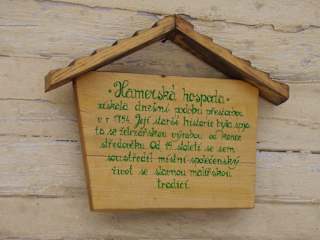 • Hamerská hospoda •
získala dnešní podobu přestavbou
v r. 1784. Její starší historie byla spja-
ta se železářskou výrobou od konce
středověku. Od 19. století se sem
soustředil místní společenský
život se slavnou malířskou
tradicí.